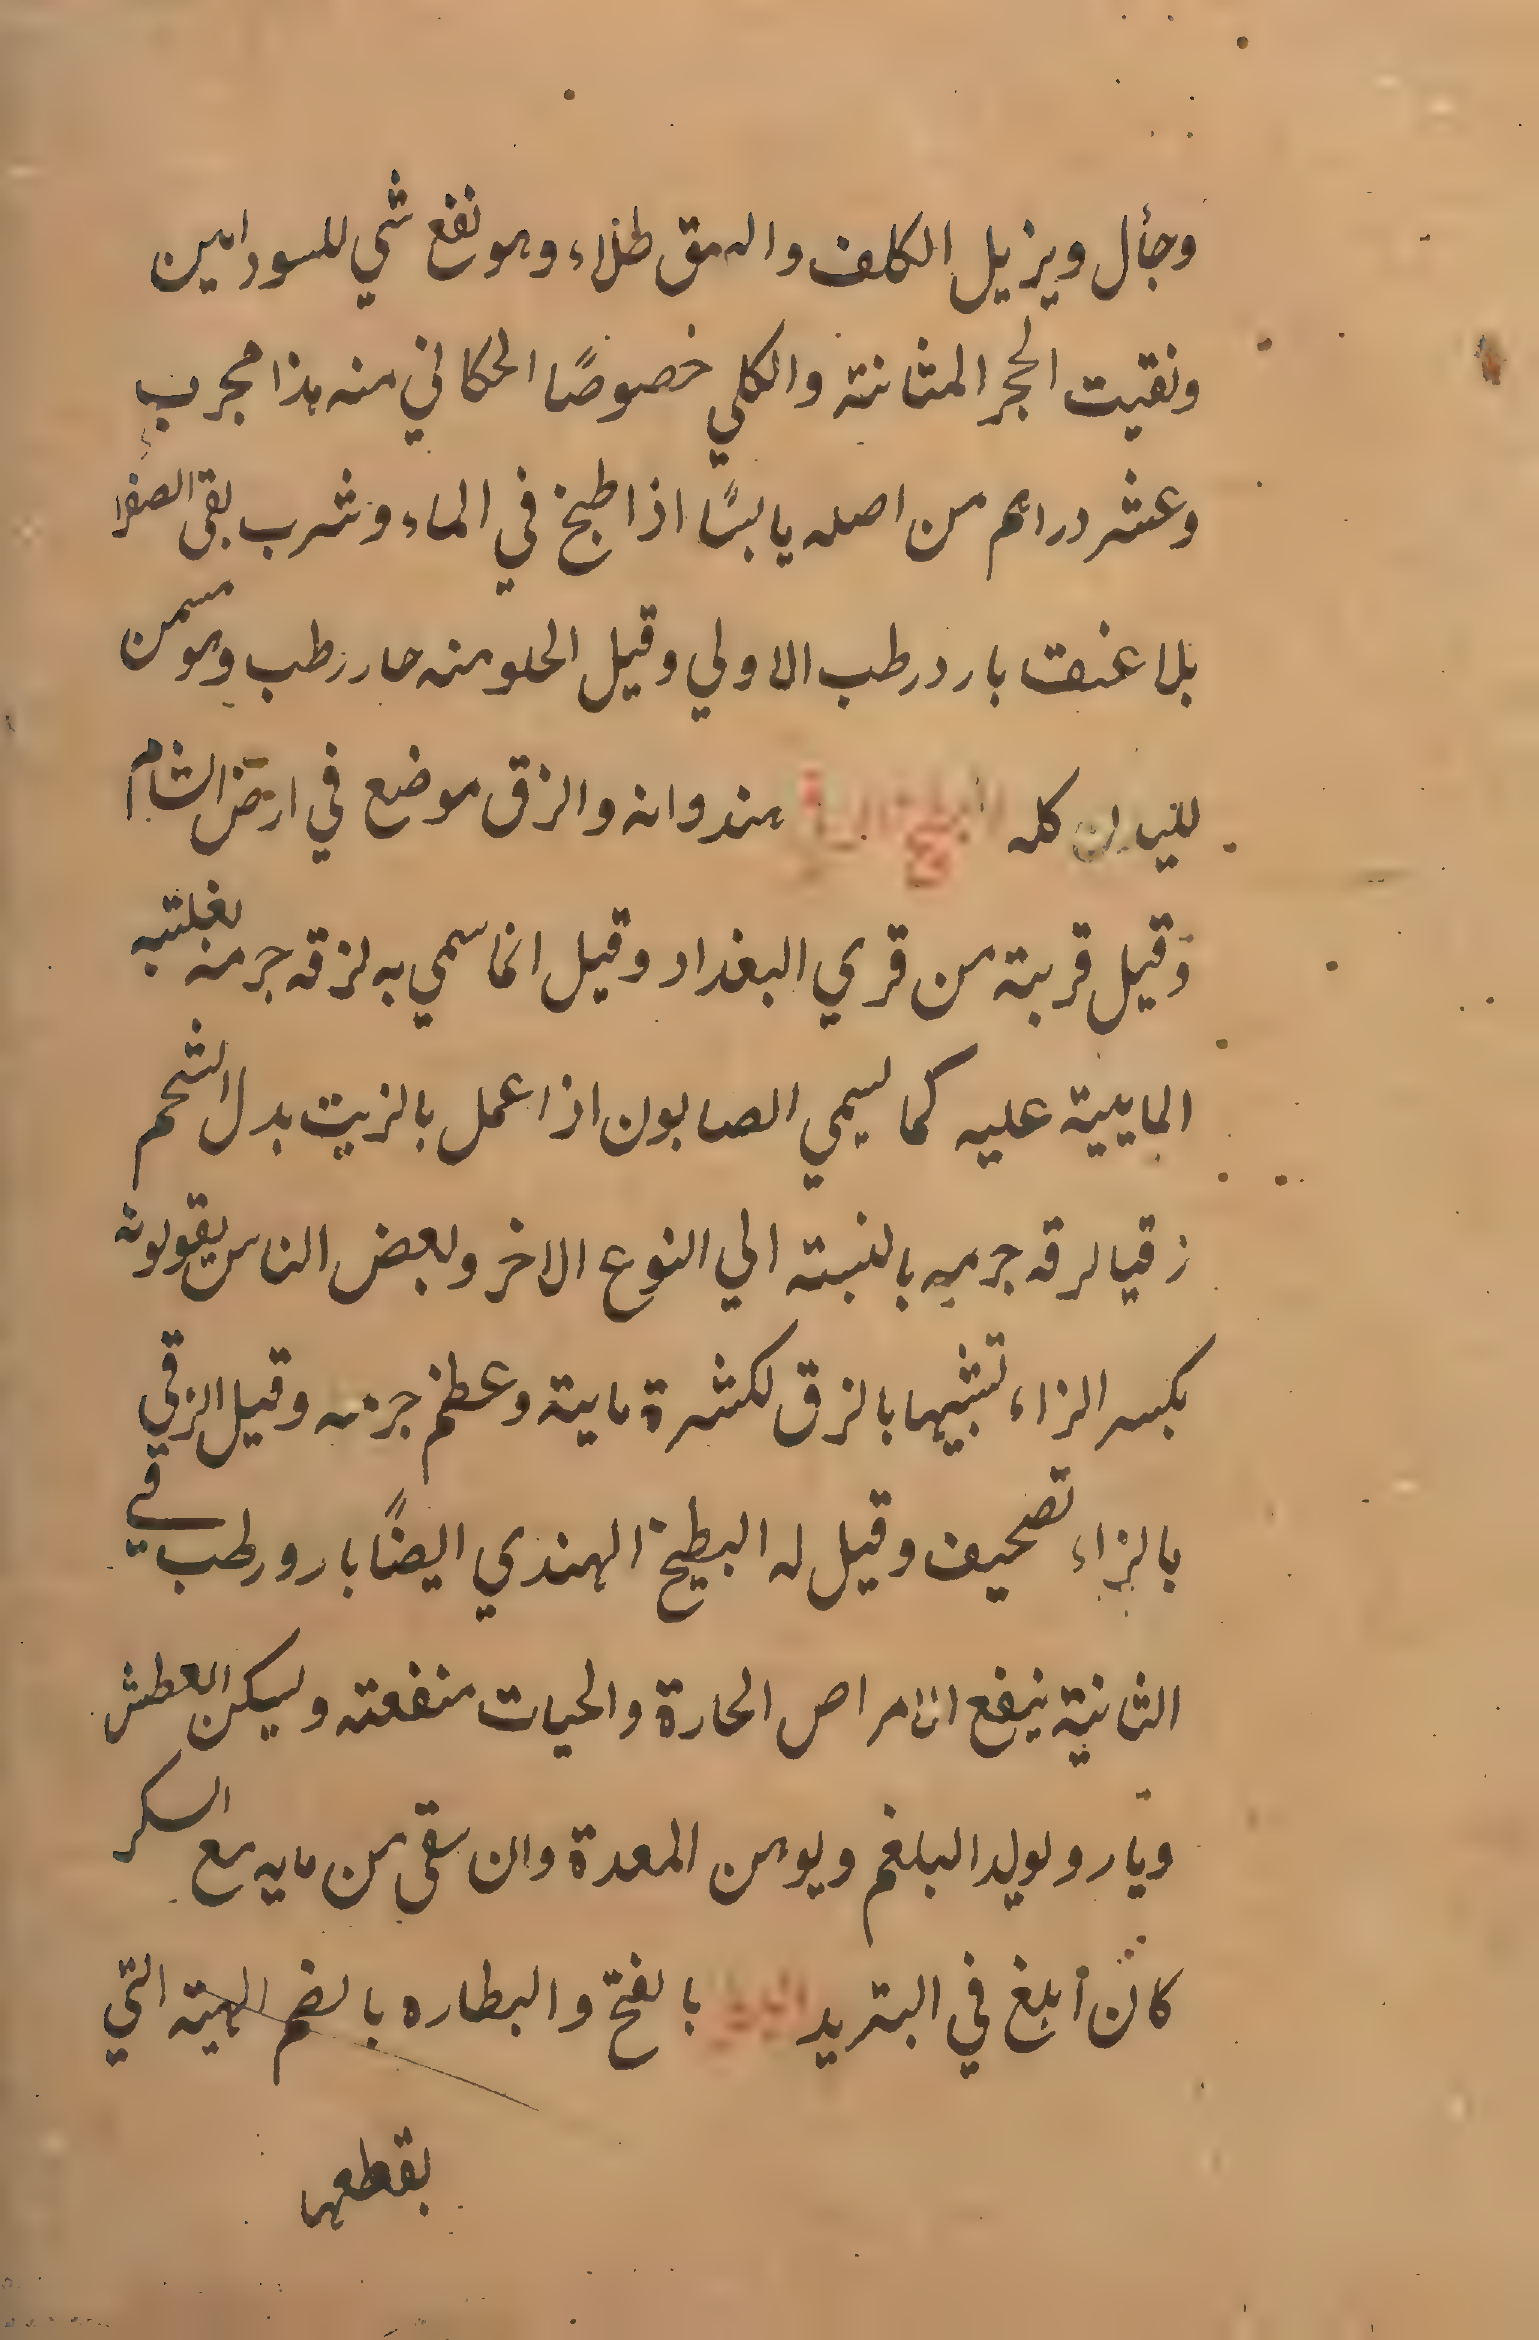 وجأل ويزيل الكلف والبهق طلاء وهو نفع شي للسودايين
ونقيت الحجر المثانتة والكلي خصوصًا الحكاني منه هذا مجرب
وعشر دراهم من اصله يابسًا اذا طبخ في الماء وشرب بقى الصفرا
بلا عنف بارد رطب الاولي وقيل الحلو منه حار رطب وهو مسمن
للبدن كله البطيخ الزقي هندوانه والزق موضع في ارض الشام
وقيل قريته من قري البغداد وقيل انما سمي به لزقه جرمه لغلبته
الماييية عليه كما ليسمي الصابون اذا عمل بالزيت بدل الشحم
زقيا لرقه جرميه بالنسبته الي النوع الاخر وبعض الناس يقولونه
بكسر الزاء تشبيها بالزق لكثرة مايية وعظم جرمه وقيل الزقي
بالزاء تصحيف وقيل له البطيخ الهندي ايضًا بارد رطب في
الثانية ينفع الامراص الحارة والحيات منفعته وليسكن العطش
ويارد وليولد البلغم ويوهن المعدة وان سقى من مايه مع السكر
كان أبلغ في التبريد بالفتح والبطاره بالضم الهية التي
بقطعها